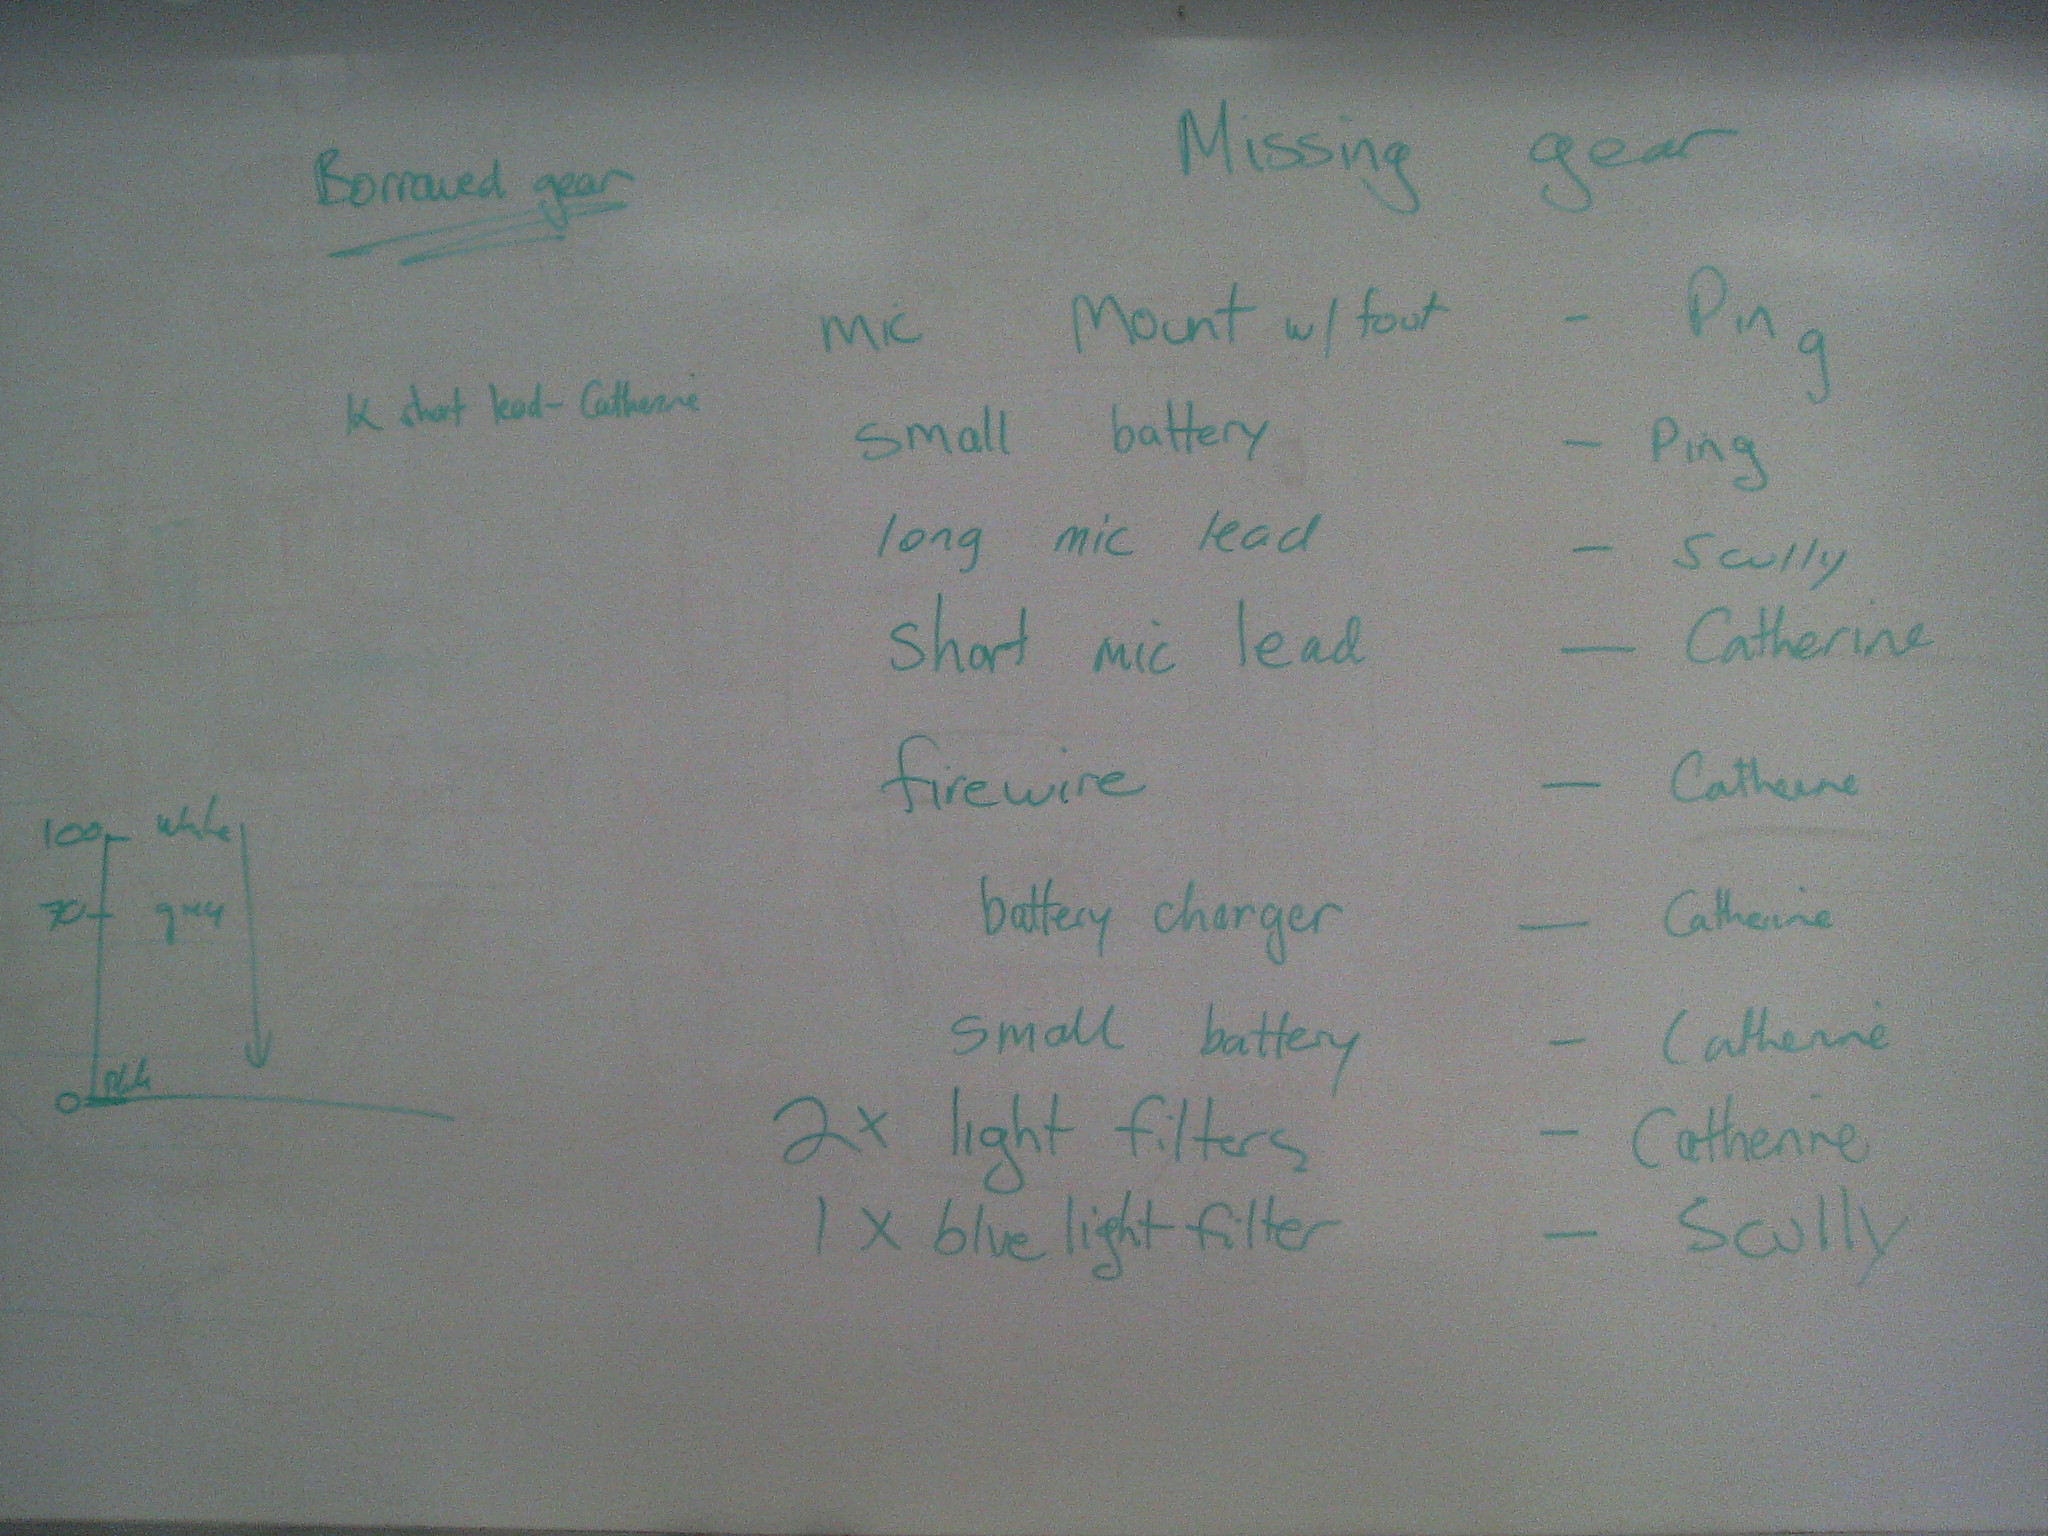 Borrowed gear
short lead - Catherine
Missing gear
mic Mount w/ foot - Ping
small battery - Ping
long mic lead - Scully
short mic lead - Catherine
firewire - Catherine
battery charger - Catherine
small battery - Catherine
2x light filters - Catherine
1 x blue light filter - Scully
100 white
70 grey
0